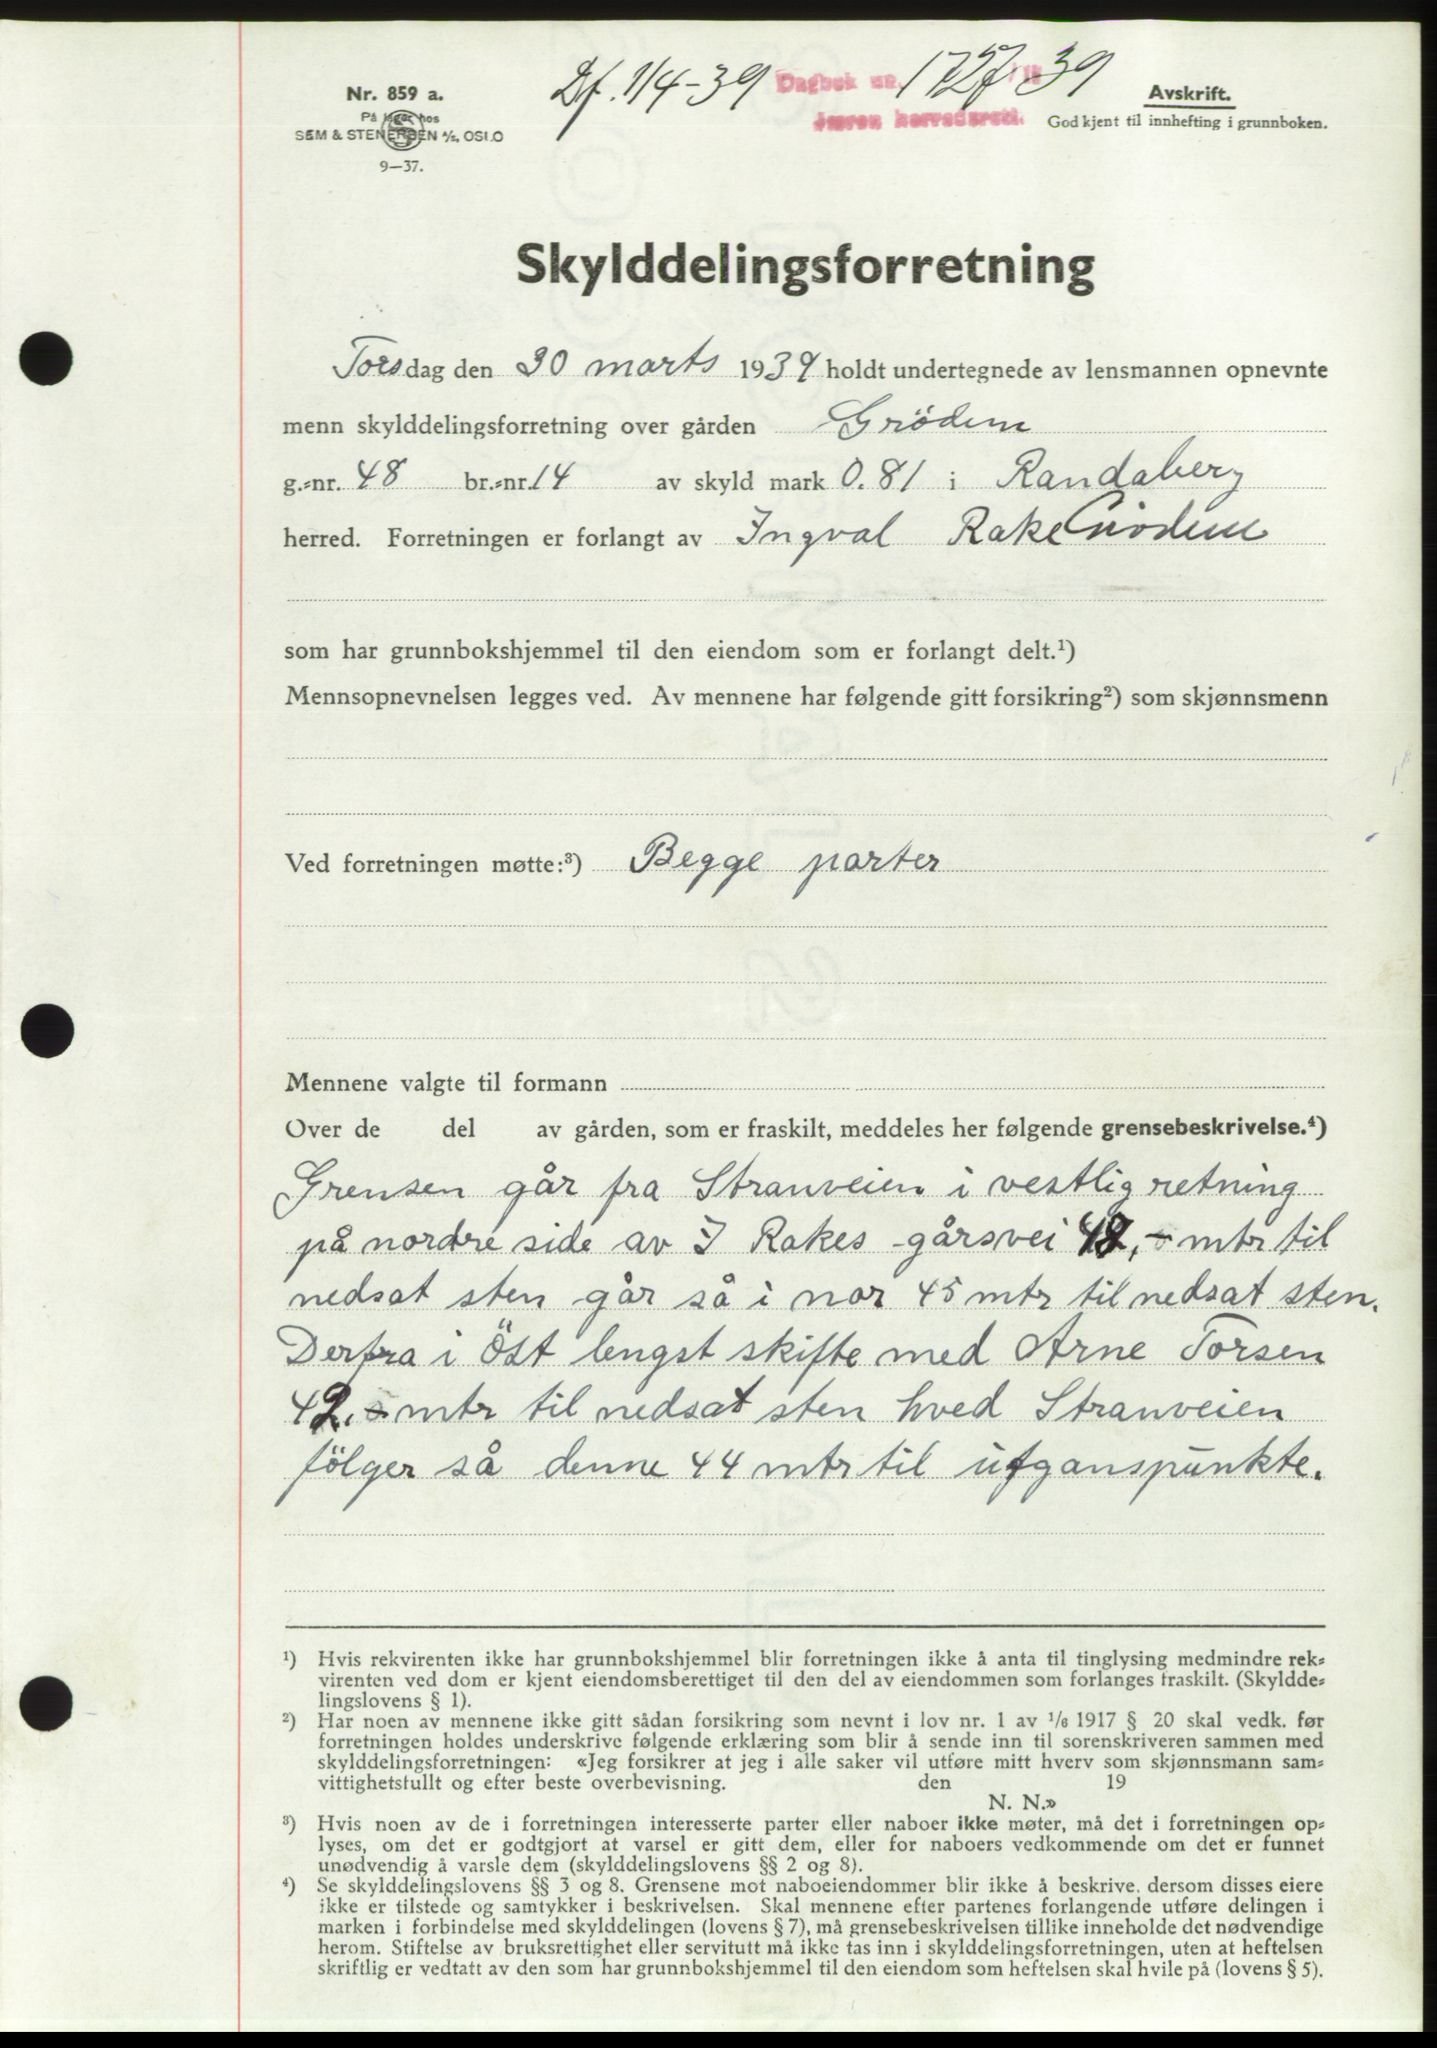 Nr. 859 a.
På lager hos
SEM & STENERSEN A/S, OSLO
9—37.
Df. 1/4-39
Dagbok nr. 1727/1939
Jæren herredsrett.
Avskrift.
Godkjent til innhefting i grunnboken.
Skylddelingsforretning
Torsdag den 30 marts 1939 holdt undertegnede av lensmannen opnevnte
menn skylddelingsforretning over gården Grödem
g.=nr. 48 br.=nr. 14 av skyld mark 0.81 i Randaberg
herred. Forretningen er forlangt av Ingval Rake Grödem
som har grunnbokshjemmel til den eiendom som er forlangt delt.¹)
Mennsopnevnelsen legges ved. Av mennene har følgende gitt forsikring²) som skjønnsmenn
Ved forretningen møtte:³) Begge parter
Mennene valgte til formann
Over de del av gården, som er fraskilt, meddeles her følgende grensebeskrivelse.⁴)
Grensen går fra Stranveien i vestlig retning
på nordre side av I Rakes gårsvei 42,- mtr til
nedsat sten går så i nor 45 mtr til nedsat sten.
Derfra i Öst lengst skifte med Arne Torsen
42,- mtr til nedsat sten hved Stranveien
fölger så denne 44 mtr til utganspunkte.
¹) Hvis rekvirenten ikke har grunnbokshjemmel blir forretningen ikke å anta til tinglysing medmindre rek=
virenten ved dom er kjent eiendomsberettiget til den del av eiendommen som forlanges fraskilt. (Skyldde=
lingslovens § 1).
²) Har noen av mennene ikke gitt sådan forsikring som nevnt i lov nr. 1 av ¹/₆ 1917 § 20 skal vedk. før
forretningen holdes underskrive følgende erklæring som blir å sende inn til sorenskriveren sammen med
skylddelingsforretningen: «Jeg forsikrer at jeg i alle saker vil utføre mitt hverv som skjønnsmann sam=
vittighetsfullt og efter beste overbevisning. den 19
N. N.»
³) Hvis noen av de i forretningen interesserte parter eller naboer ikke møter, må det i forretningen op=
lyses, om det er godtgjort at varsel er gitt dem, eller for naboers vedkommende om det er funnet
unødvendig å varsle dem (skylddelingslovens §§ 2 og 8).
⁴) Se skylddelingslovens §§ 3 og 8. Grensene mot naboeiendommer blir ikke å beskrive, dersom disses eiere
ikke er tilstede og samtykker i beskrivelsen. Skal mennene efter partenes forlangende utføre delingen i
marken i forbindelse med skylddelingen (lovens § 7), må grensebeskrivelsen tillike inneholde det nødvendige
herom. Stiftelse av bruksrettighet eller servitutt må ikke tas inn i skylddelingsforretningen, uten at heftelsen
skriftlig er vedtatt av den som har grunnbokshjemmel til den eiendom som heftelsen skal hvile på (lovens § 5).